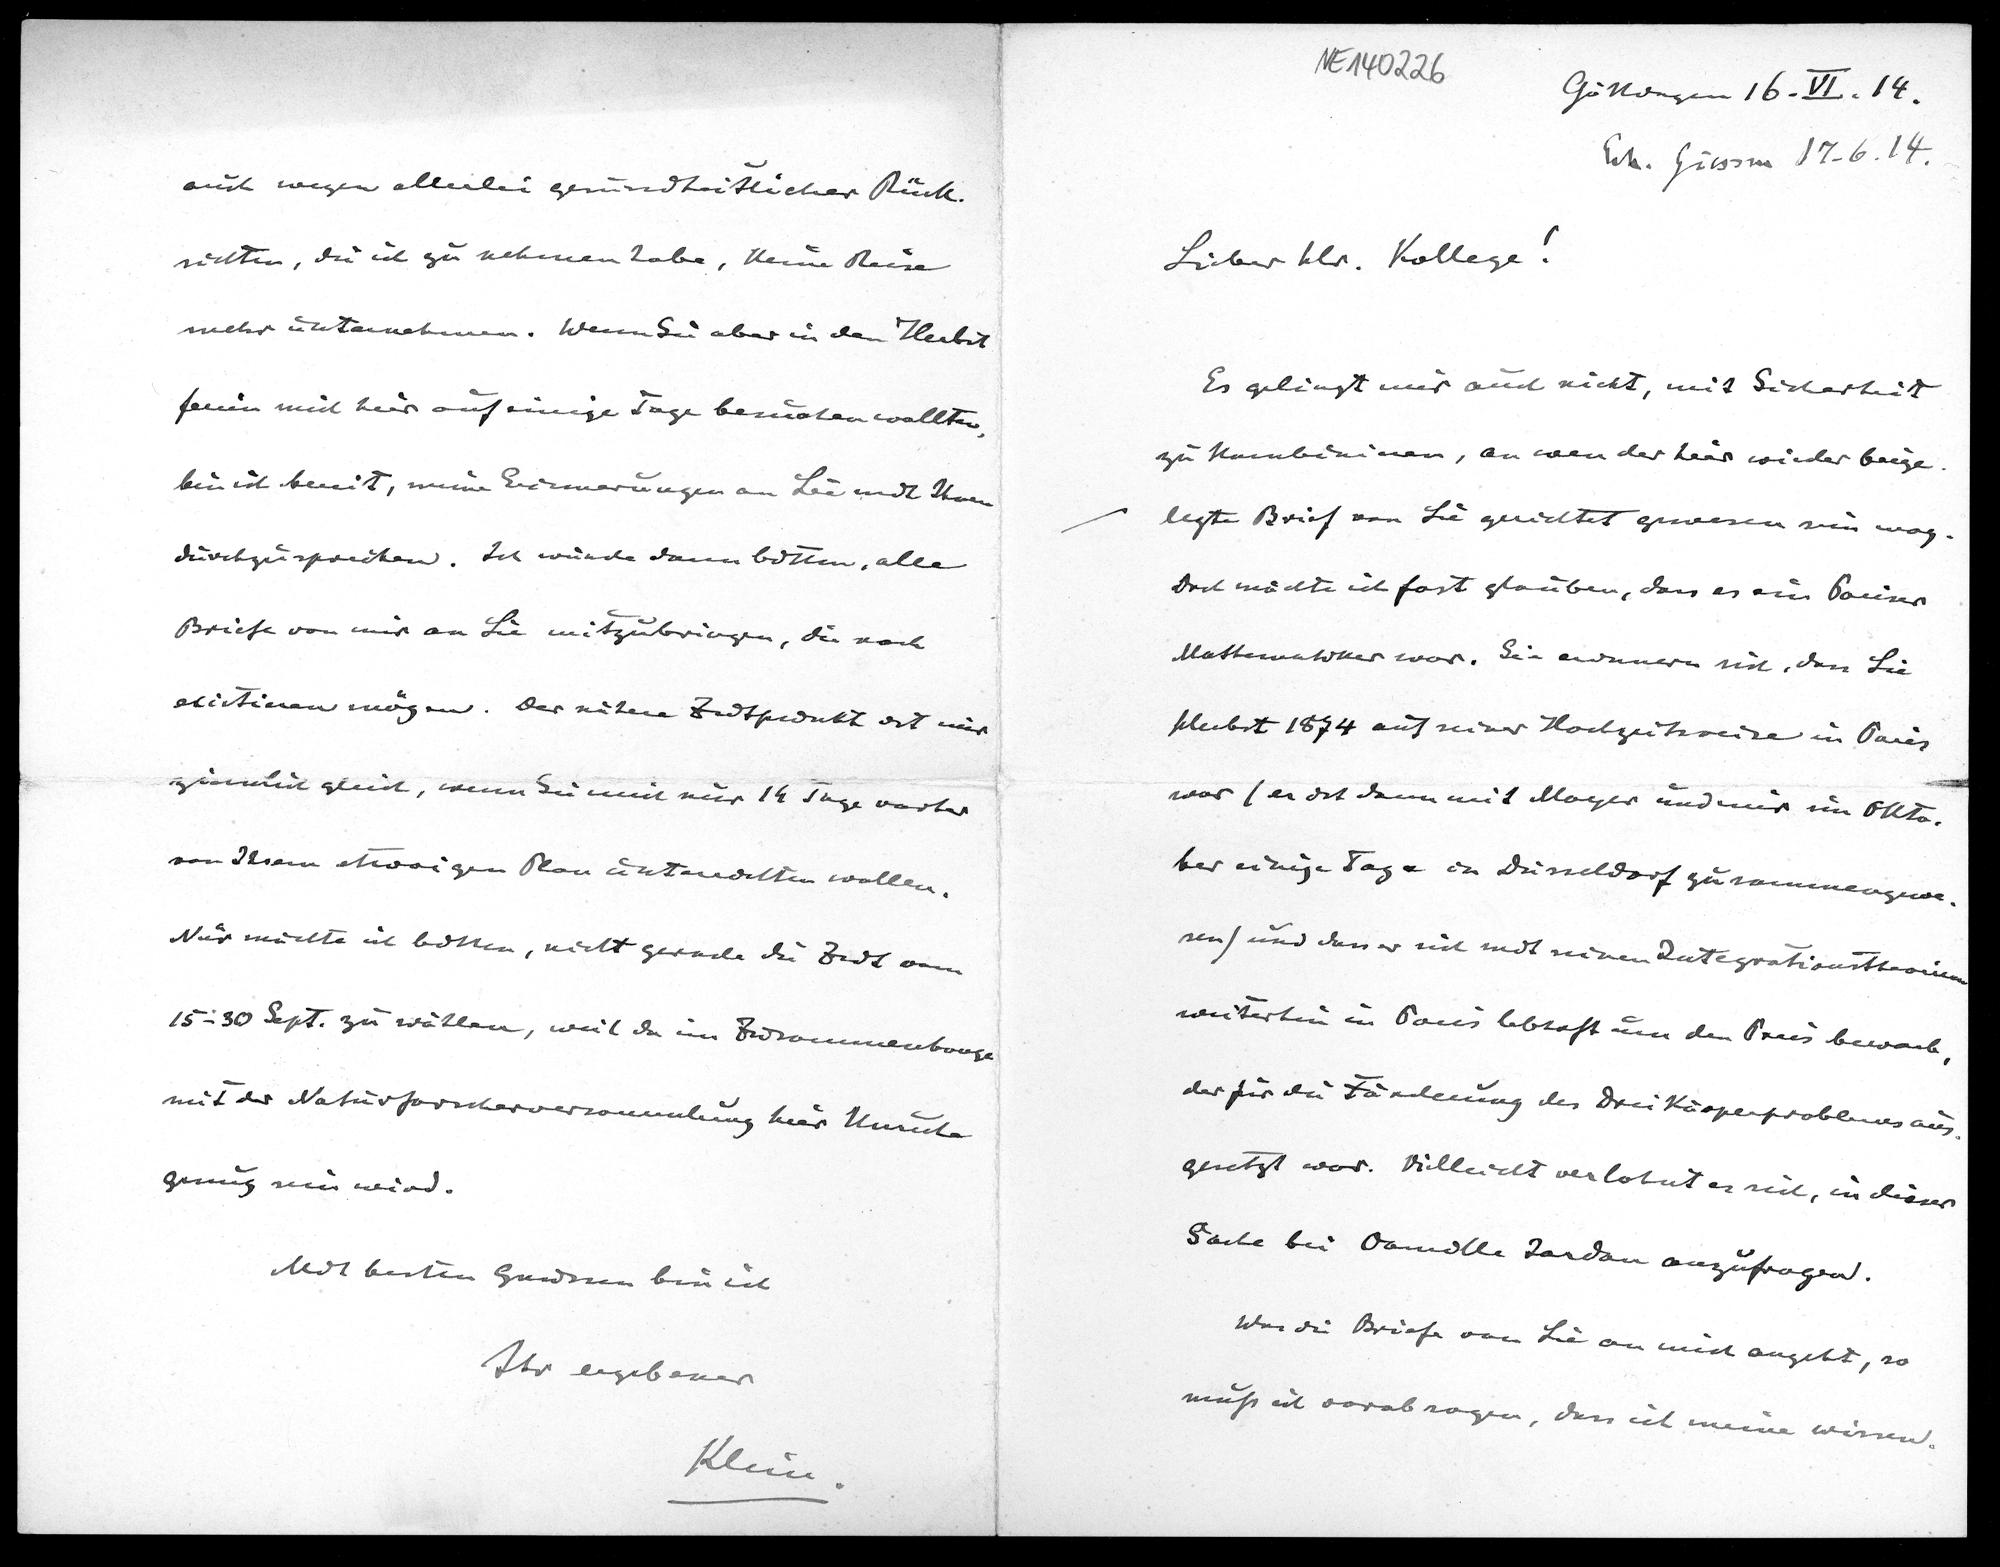 NE140226
Göttingen 16. VI. 14.
Erh. Giessen 17.6.14.
Lieber Hr. Kollege!
Es gelingt mir auch nicht, mit Sicherheit
zu kombinieren, an wen der hier wieder beige-
legte Brief von Lie gerichtet gewesen sein mag.
Doch möchte ich fast glauben, dass es ein Pariser
Mathematiker war. Sie erinnern sich, dass Lie
Herbst 1874 auf seiner Hochzeitsreise in Paris
war (er ist dann mit Mayer und mir im Okto-
ber einige Tage in Düsseldorf zusammengewe-
sen) und dass er sich mit seinen Integrationstheorien
weiterhin in Paris lebhaft um den Preis bewarb,
der für die Förderung des Dreikörperproblems aus-
gesetzt war. Vielleicht verlohnt es sich, in dieser
Sache bei Camille Jordan anzufragen.
Was die Briefe von Lie an mich angeht, so
muß ich vorab sagen, dass ich meine wissen-
auch wegen allerlei gesundheitlicher Rück-
sichten, die ich zu nehmen habe, keine Reise
mehr unternehmen. Wenn Sie aber in den Herbst
ferien mich hier auf einige Tage besuchen wollten,
bin ich bereit, meine Erinnerungen an Lie mit Ihnen
durchzusprechen. Ich würde dann bitten, alle
Briefe von mir an Lie mitzubringen, die noch
existieren mögen. Der nähere Zeitpunkt ist mir
ziemlich gleich, wenn Sie mich nur 14 Tage vorher
von Ihrem etwaigen Plan unterrichten wollen.
Nur möchte ich bitten, nicht gerade die Zeit vom
15-30 Sept. zu wählen, weil da im Zusammenhange
mit der Naturforscherversammlung hier Unruhe
genug sein wird.
Mit besten Grüssen bin ich
Ihr ergebener
Klein.